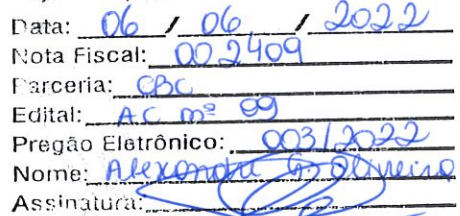 Data: 06 / 06 / 2022
Nota Fiscal: 002409
Parceria: CBC
Edital: AC nº 09
Pregão Eletrônico: 003/2022
Nome: Alexandre G Oliveira
Assinatura: